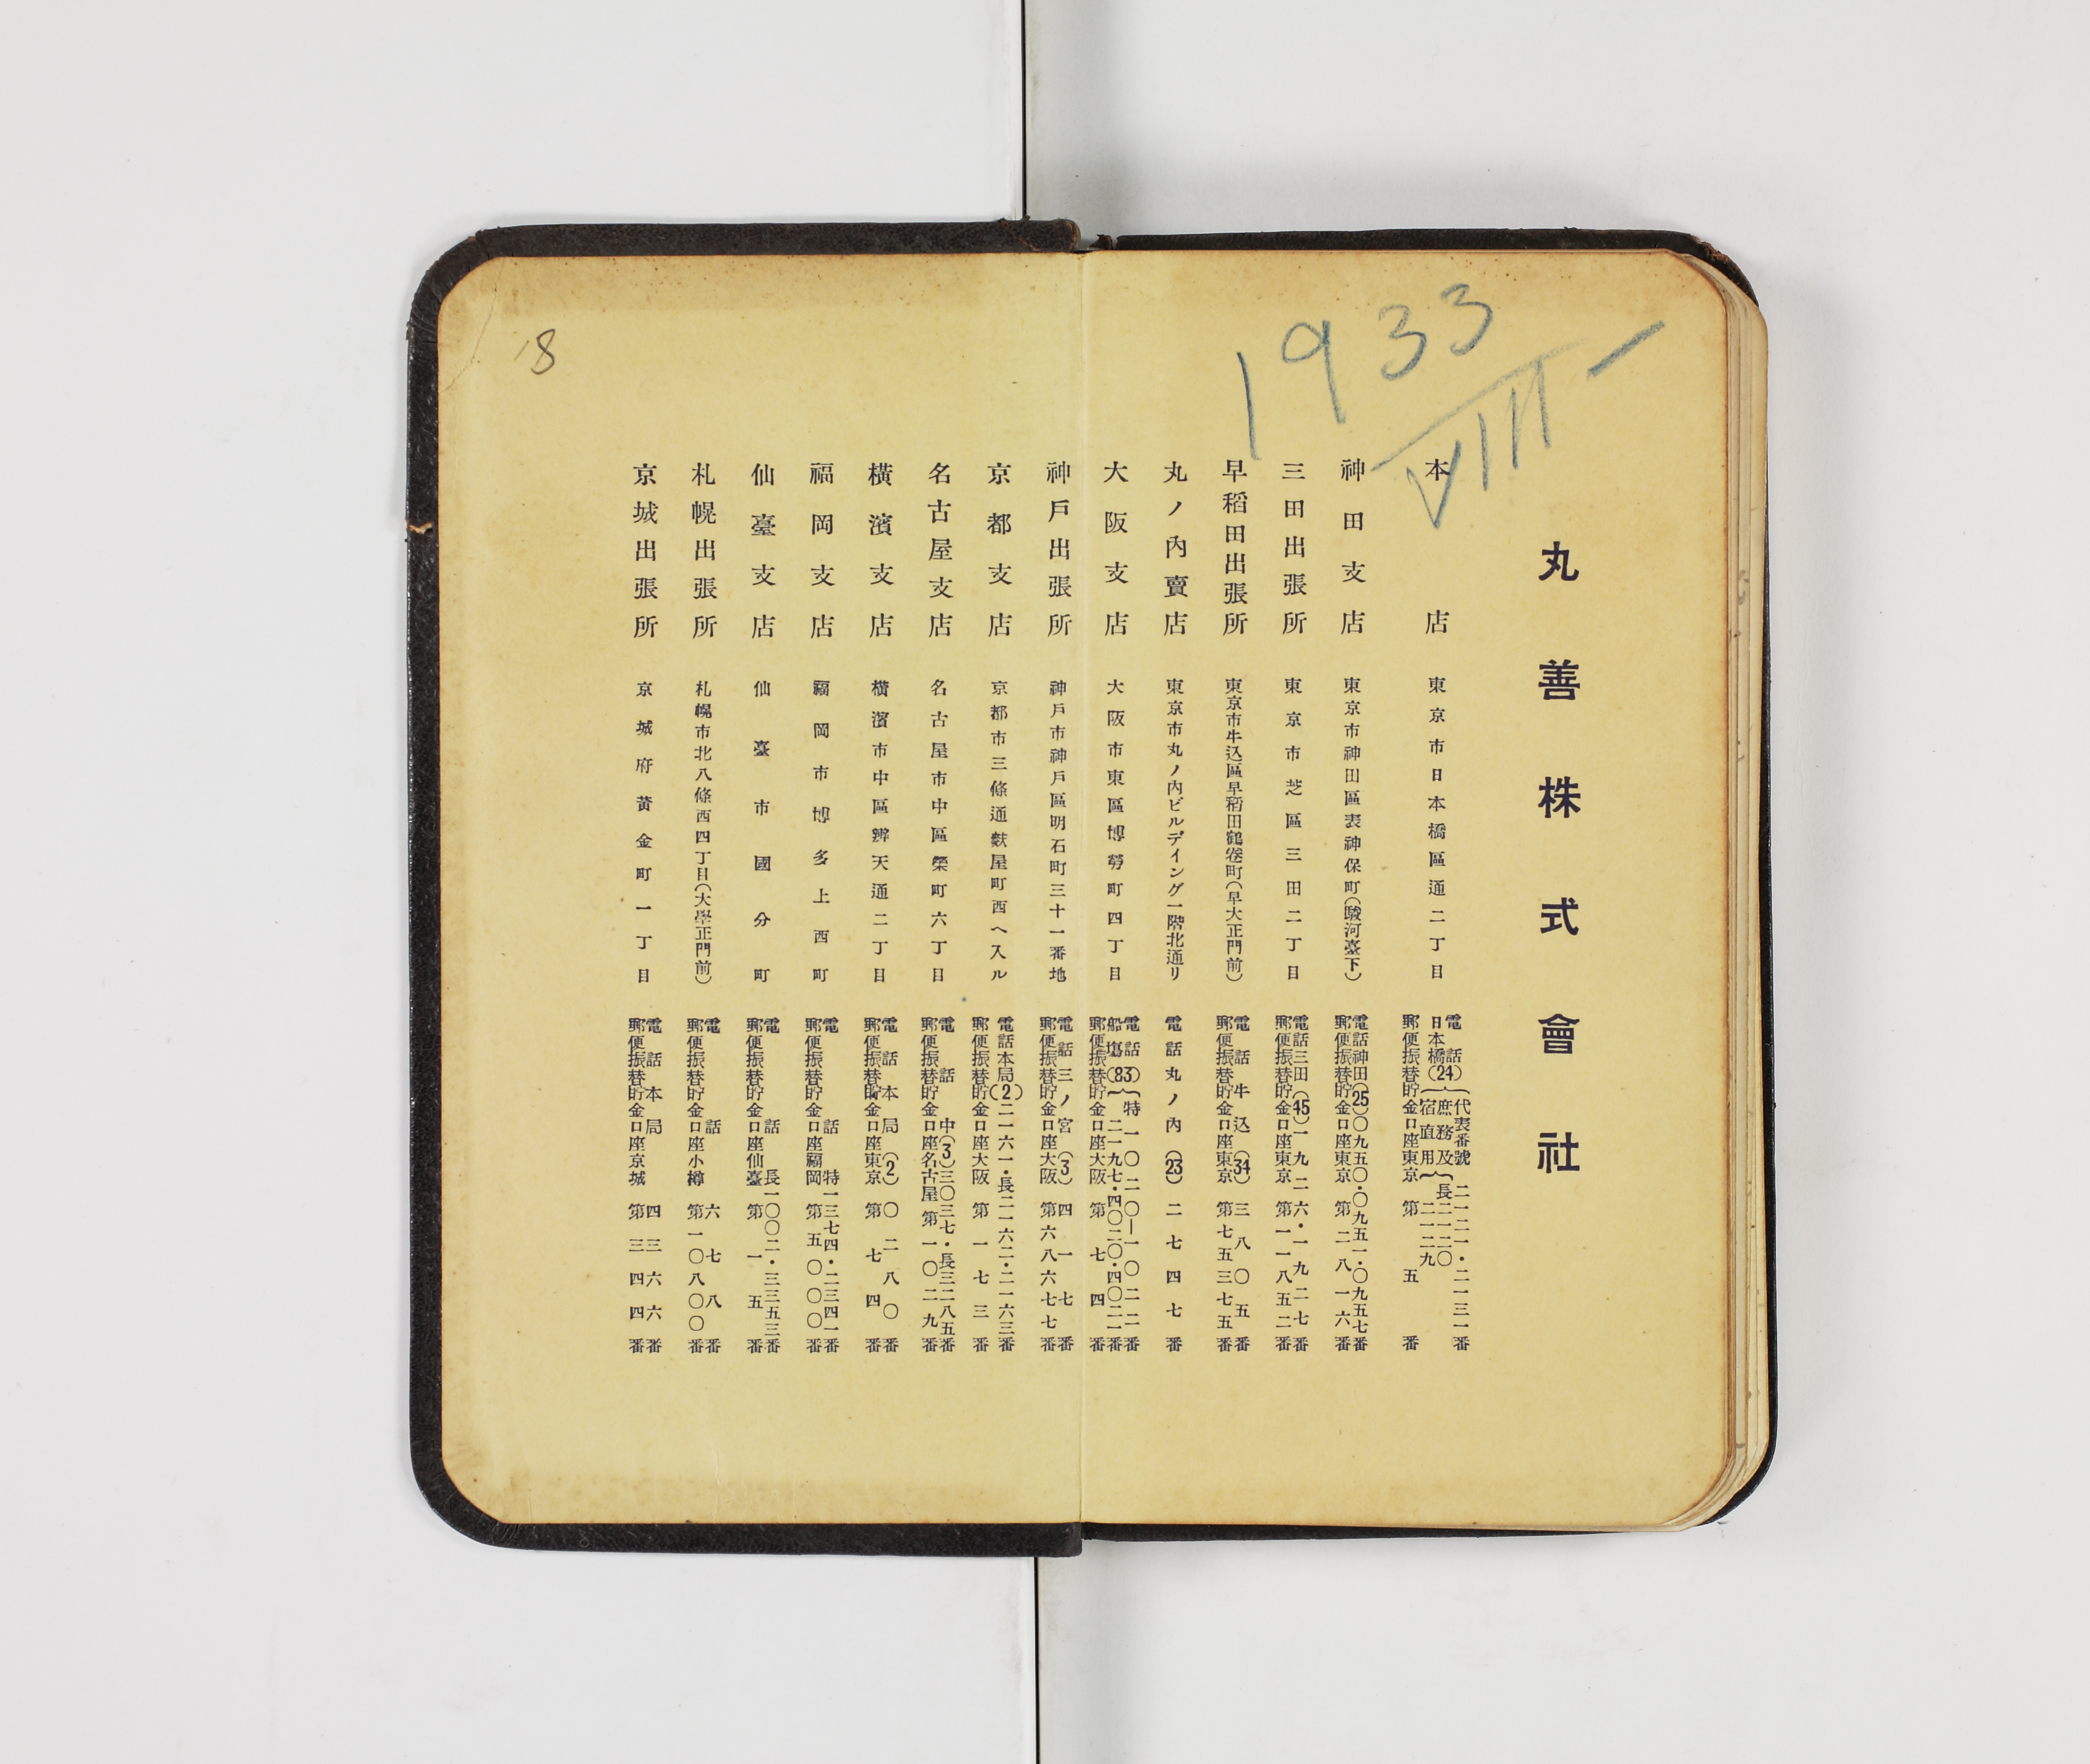 18
1933
VIII–
丸善株式會社
本店 東京市日本橋區通二丁目 電話日本橋(24) 代表番號 二一二一・二一三一番
庶務及宿直用 長二一二〇 二一二九
郵便振替貯金口座東京 第五番
神田支店 東京市神田區表神保町(駿河臺下) 電話神田(25)〇九五〇・〇九五一・〇九五七番
郵便振替貯金口座東京 第二八一六番
三田出張所 東京市芝區三田二丁目 電話三田(45)一九二六・一九二七番
郵便振替貯金口座東京 第一一八五二番
早稻田出張所 東京市牛込區早稻田鶴卷町(早大正門前) 電話牛込(34)三八〇五番
郵便振替貯金口座東京 第七五三七五番
丸ノ內賣店 東京市丸ノ內ビルデイング一階北通リ 電話丸ノ內(23)二七四七番
大阪支店 大阪市東區博勞町四丁目 電話船塲(83) 特一〇二〇—一〇二二番
二一九七・四〇二〇・四〇二一番
郵便振替貯金口座大阪 第七四番
神戶出張所 神戶市神戶區明石町三十一番地 電話三ノ宮(3)四一七番
郵便振替貯金口座大阪 第六八六七七番
京都支店 京都市三條通麩屋町西へ入ル 電話本局(2)二一六一・長二一六二・二一六三番
郵便振替貯金口座大阪 第一七三番
名古屋支店 名古屋市中區榮町六丁目 電話中(3)三〇三七・長三二八五番
郵便振替貯金口座名古屋 第一〇二九番
橫濱支店 橫濱市中區辨天通二丁目 電話本局(2)〇二八〇番
郵便振替貯金口座東京 第七四番
福岡支店 福岡市博多上西町 電話特一三七四・二三四一番
郵便振替貯金口座福岡 第五〇〇〇番
仙臺支店 仙臺市國分町 電話長一〇〇二・三三五三番
郵便振替貯金口座仙臺 第一五番
札幌出張所 札幌市北八條西四丁目(大學正門前) 電話六七八番
郵便振替貯金口座小樽 第一〇八〇〇番
京城出張所 京城府黃金町一丁目 電話本局四三六六番
郵便振替貯金口座京城 第三四四番